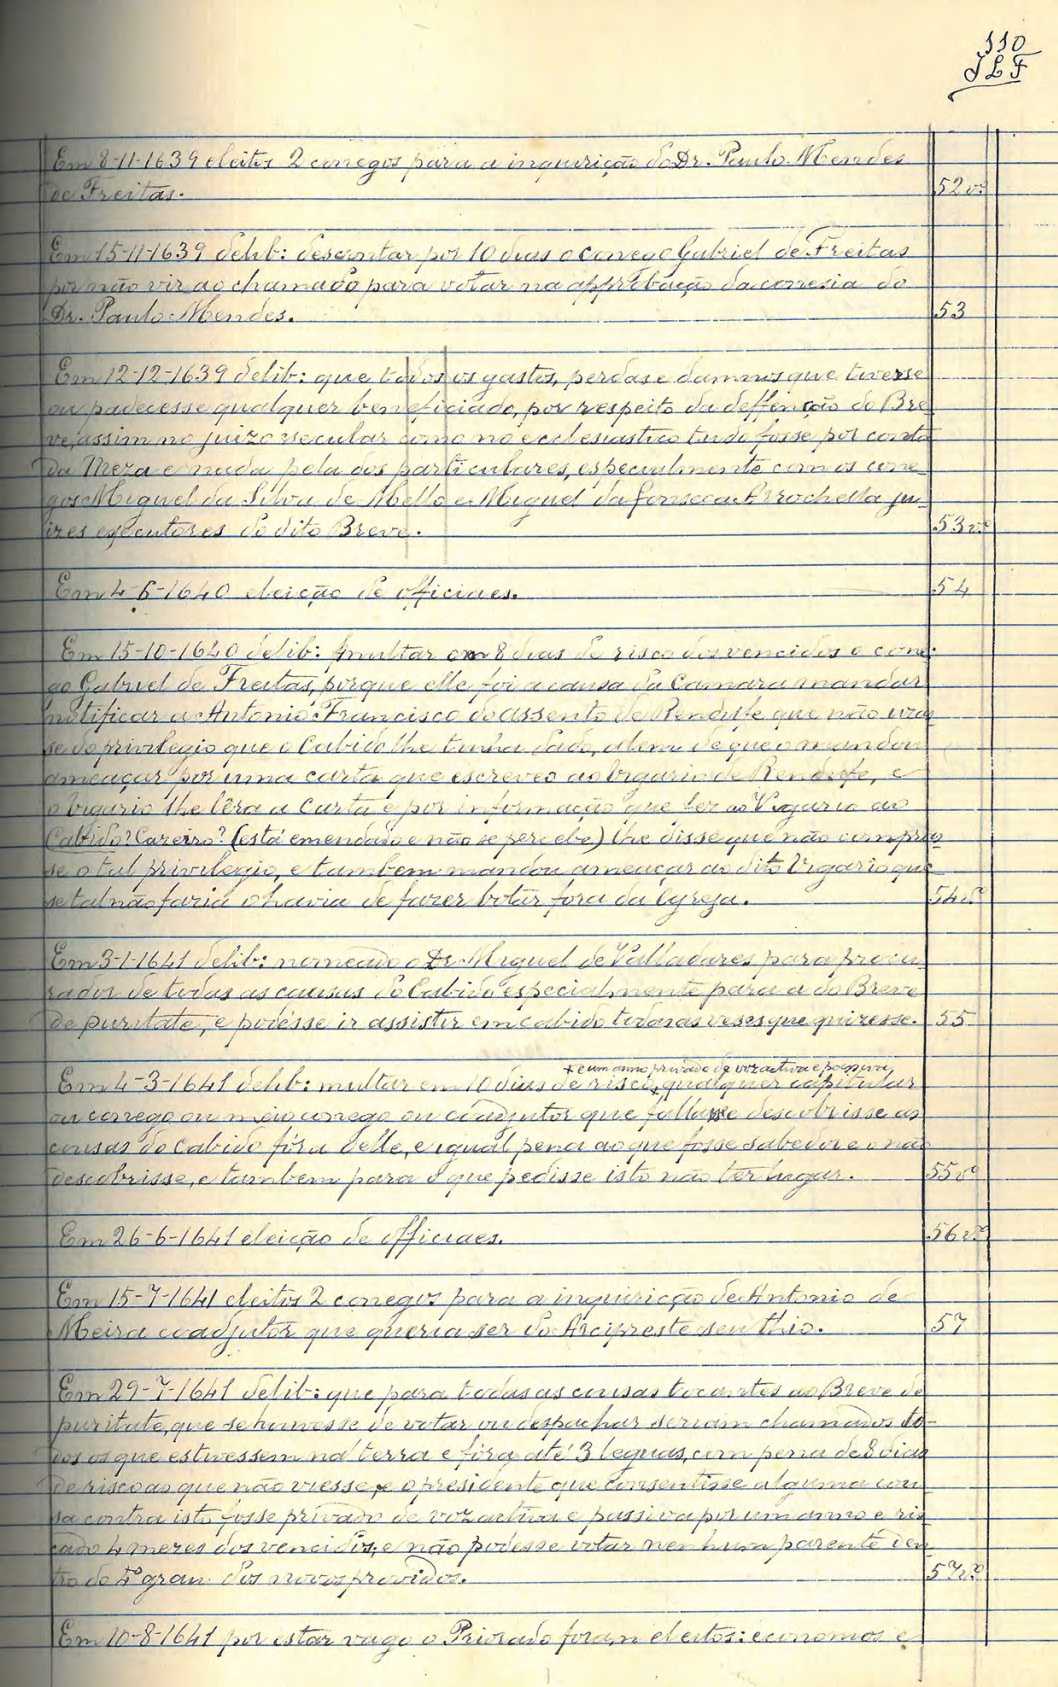 110
JLF
Em 8-11-1639 eleitos 2 conegos para a inquirição do Dr. Paulo Mendes
de Freitas. 52vº
Em 15-11-1639 delib: descontar por 10 dias o conego Gabriel de Freitas
por não vir ao chamado para votar na approbação da conesia do
Dr. Paulo Mendes. 53
Em 12-12-1639 delib: que todos os gastos, perdas e damnos que tivesse
ou padecesse qualquer beneficiado, por respeito da deffinção do Bre-
ve, assim no juizo secular como no ecclesiastico tudo fosse por conta
da Meza e nada pela dos particulares, especialmente com os cone-
gos Miguel da Silva de Mello e Miguel da Fonseca Arrochella ju-
izes executores do dito Breve. 53vº
Em 4-6-1640 eleição de officiaes. 54
Em 15-10-1640 delib: multar em 8 dias de risco dos vencidos o cone-
go Gabriel de Freitas, porque elle foi a causa da Camara mandar
notificar a Antonio Francisco do assento de Rendufe que não uza-
se do privilegio que o Cabido lhe tinha dado, alem de que o mandou
ameaçar por uma carta que escreveo ao Vigario de Rendufe, e
o Vigario lhe lêra a carta e por informação que fez ao Vigario ao
Cabido? Careiro? (está emendado e não se percebe) lhe disse que não cumpris-
se o tal privilegio, e tambem mandou ameaçar ao dito Vigario que
se tal não faria o havia de fazer botar fora da Igreja. 54vº
Em 3-1-1641 delib: nomeado o Dr. Miguel de Valladares para procu-
rador de todas as causas do Cabido especialmente para a do Breve
de puritate, e podésse ir assistir em cabido todas as veses que quizesse. 55
x e um anno privado de voz activa e passiva,
Em 4-3-1641 delib: multar em 10 dias de risco x qualquer capitular
ou conego ou meio conego ou coadjutor que fallasse e descobrisse as
cousas do Cabido fóra delle, e igual pena ao que fosse sabedor e o não
descobrisse, e tambem para o que pedisse isto não ter lugar. 55vº
Em 26-6-1641 eleição de officiaes. 56vº
Em 15-7-1641 eleitos 2 conegos para a inquirição de Antonio de
Meira coadjutor que queria ser do Arcipreste seu thio. 57
Em 29-7-1641 delib: que para todas as cousas tocantes ao Breve de
puritate, que se houvesse de votar ou despachar seriam chamados to-
dos os que estivessem na terra e fóra até 3 leguas, com pena de 8 dias
de risco ao que não viesse, e o presidente que consentisse alguma cou-
sa contra isto fosse privado de voz activa e passiva por um anno e ris-
cado 4 mezes dos vencidos, e não podesse votar nenhum parente den-
tro do 4º grau dos novos providos. 57vº
Em 10-8-1641 por estar vago o Priorado foram eleitos: economos e